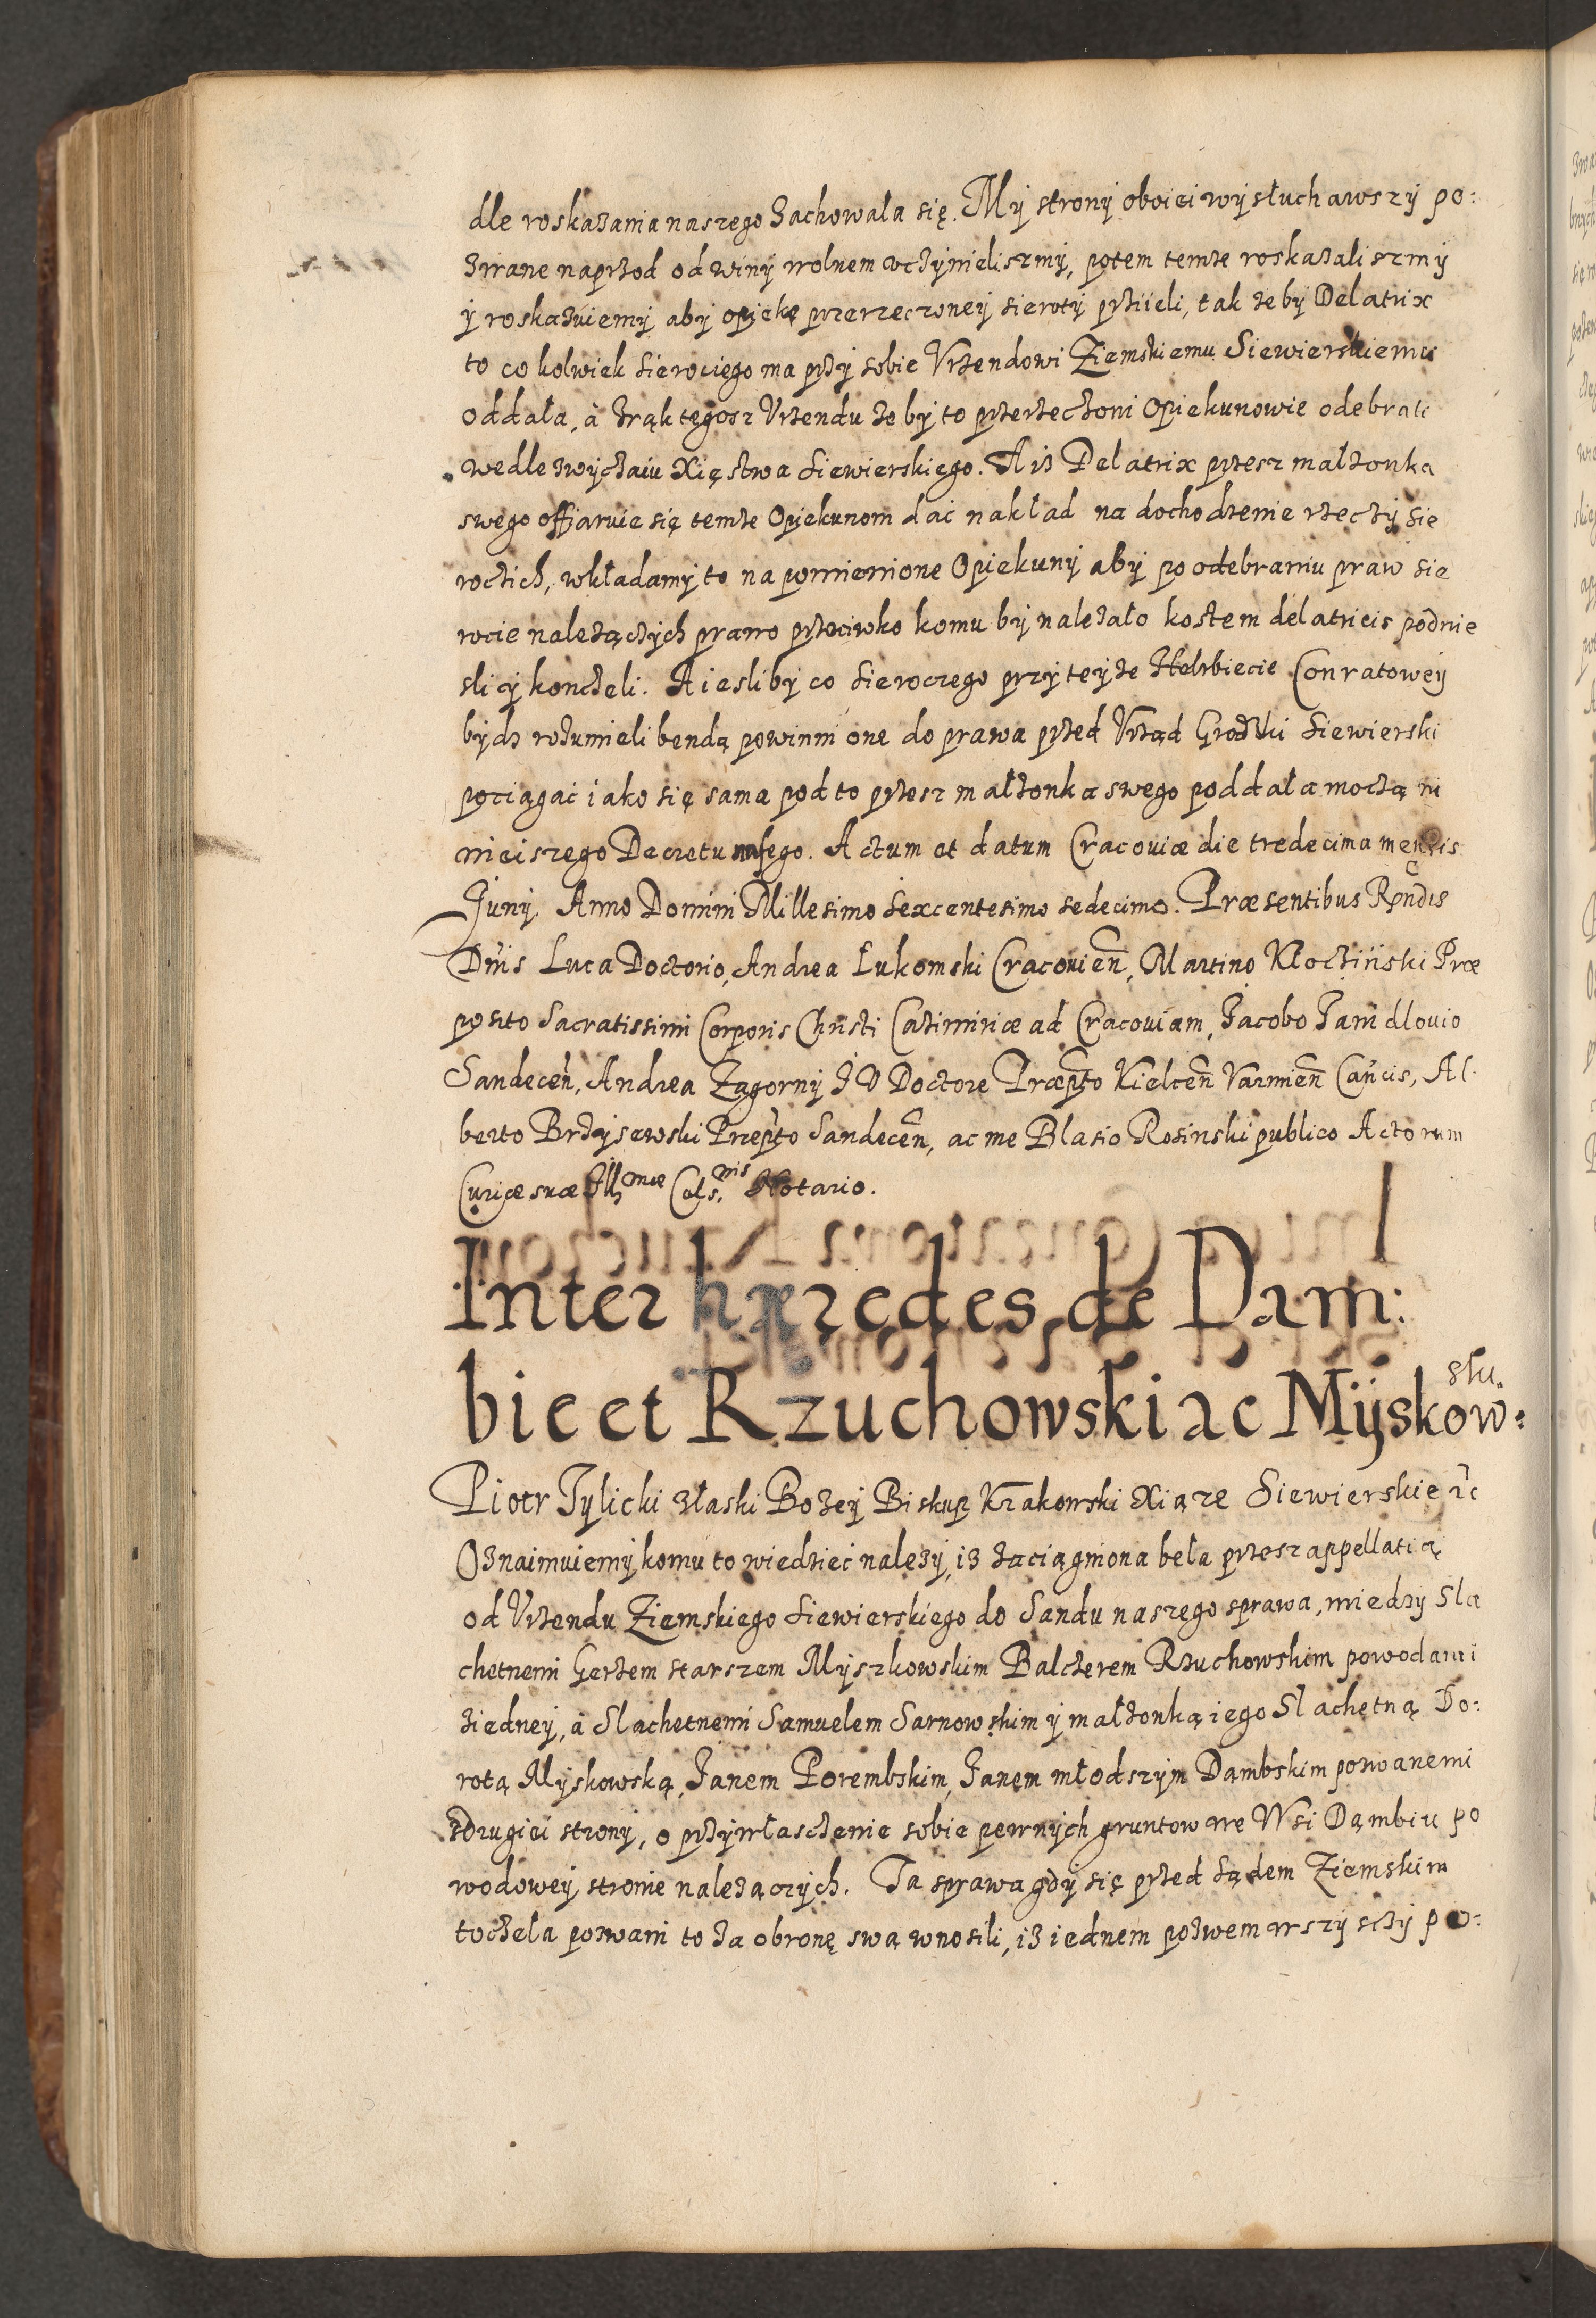 dle roskazania naszego zachowała się. My strony oboiei wysłuchawszy po:
zwane naprzod od winy wolnem vczynieliszmy, potem temze roskazaliszmy
y roskazuiemy aby opiekę przerzeczoney sieroty prziieli, tak zeby Delatrix
to co kolwiek sierociego ma przy sobie Vrzendowi Ziemskiemu Siewierskiemu
oddała, à zrąk tegosz Vrzendu zeby to przerzeczoni Opiekunowie odebrali
wedle zwyczaiu Xięstwa Siewierskiego. A iz Delatrix przesz malzonka
swego offiaruie się temze Opiekunom dac nakład na dochodzenie rzeczy sie
roczich, wkładamy to na pomienione Opiekuny aby po odebraniu praw sie
rocie nalezączych prawo przeciwko komu by nalezało kostem delatricis podnie
sli cy konczeli. A iesliby co sieroczego przy teyze Helzbiecie Conratowey
bydz rozumieli bendą powinni one do prawa przed Vrząd Grodzki Siewierski
pociągać iako się sama pod to przesz małzonka swego poddała moczą ni
nieiszego Decretu nasego. Actum et datum Cracoviæ die tredecima mensis
Juny. Anno Domini Millesimo sexcentesimo sedecimo. Præsentibus Rndis
Dnis Luca Doctorio, Andrea Łukomski Cracovien, Martino Kłocziński Præ
posito Sacratissimi Corporis Christi Casimiriæ ad Cracoviam, Jacobo Janidlovio
Sandecen, Andrea Zagorny J V Doctore Præpto Kielcen Varmien Cancis, Al.
berto Brzysewski Præpto Sandecen, ac me Blasio Rosinski publico Actorum
Curiæ suæ Illmæ Cels.nis Notario.
Inter hæredes de Dam:
bie et Rzuchowski ac Myskow:
sku.
Piotr Tylicki złaski Bozey Biskup Krakowski Xiąze Siewierskie rc
Oznaimuiemy komu to wiedziec nalezy, iz zaciągniona beła przesz appellatią
od Vrzendu Ziemskiego Siewierskiego do Sandu naszego sprawa, miedzy Sla
chetnemi Gerzem starszem Myszkowskim Balczerem Rzuchowskim powodami
ziedney, à Slachetnemi Samuelem Sarnowskim y małzonką iego Slachetną Do:
rotą Myskowską, Janem Porembskim, Janem młodszym Dąmbskim pozwanemi
zdrugiei strony, o przywłasczenie sobie pewnych gruntow we Wsi Dąmbiu po
wodowey stronie nalezączych. Ta sprawa gdy się przed sądem Ziemskim
toczela pozwani to za obronę swą wnosili, iz iednem pozwem wszyscy po: